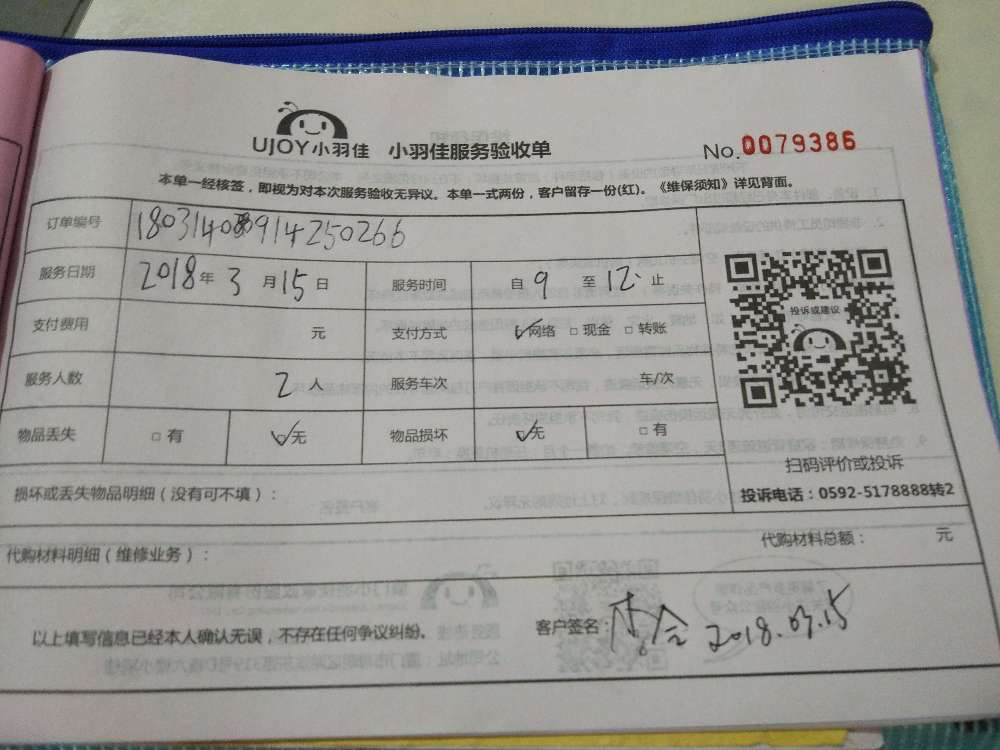 UJOY小羽佳 小羽佳服务验收单 No.0079386
本单一经核签，即视为对本次服务验收无异议。本单一式两份，客户留存一份(红)。《维保须知》详见背面。
订单编号
服务日期 2018年3月15日 服务时间 自9至12止
支付费用 元 支付方式 ☑网络 □现金 □转账
投诉或建议
服务人数 2人 服务车次 车/次
物品丢失 □有 ☑无 物品损坏 ☑无 □有
扫码评价或投诉
损坏或丢失物品明细（没有可不填）：
投诉电话：0592-5178888转2
代购材料明细（维修业务）：
代购材料总额： 元
以上填写信息已经本人确认无误，不存在任何争议纠纷。 客户签名： 2018.03.15